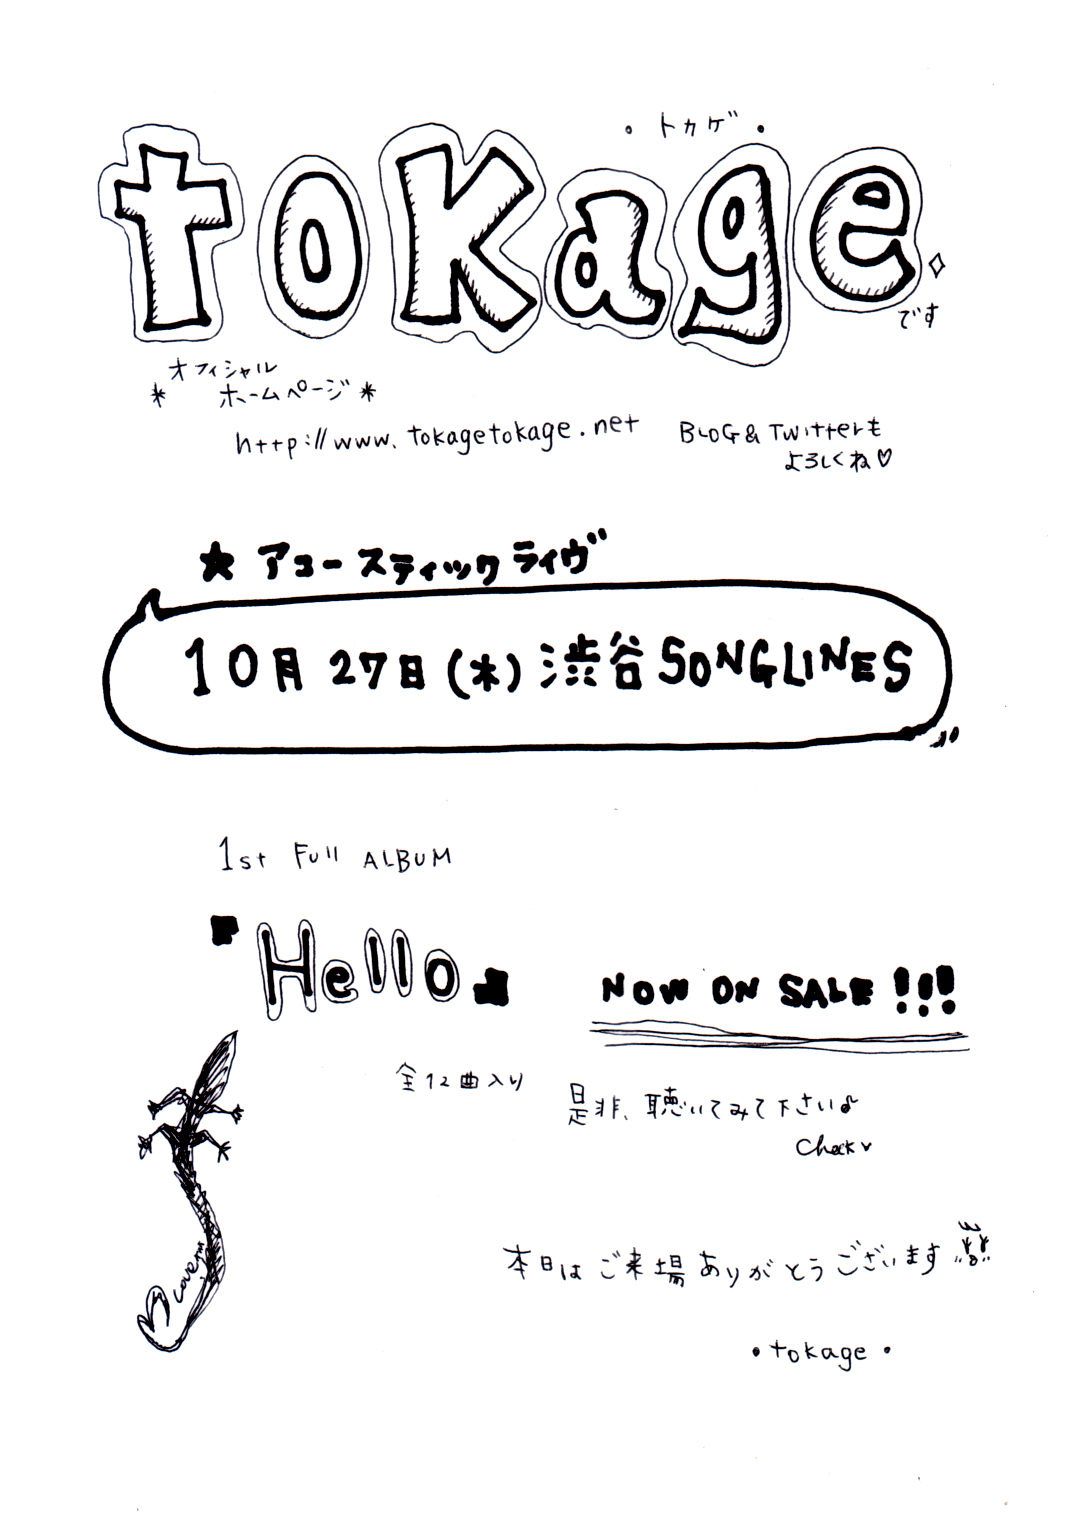 ・トカゲ・
tokage
です
オフィシャル
＊ ホームページ＊
http://www.tokagetokage.net
BLOG & Twitterも
よろしくね♡
★ アコースティック ライヴ
10月27日(木) 渋谷 SONGLINES
1st Full ALBUM
『Hello』
NOW ON SALE !!!
全12曲入り
是非、聴いてみて下さい♪
Check
本日はご来場ありがとうございます
・tokage・